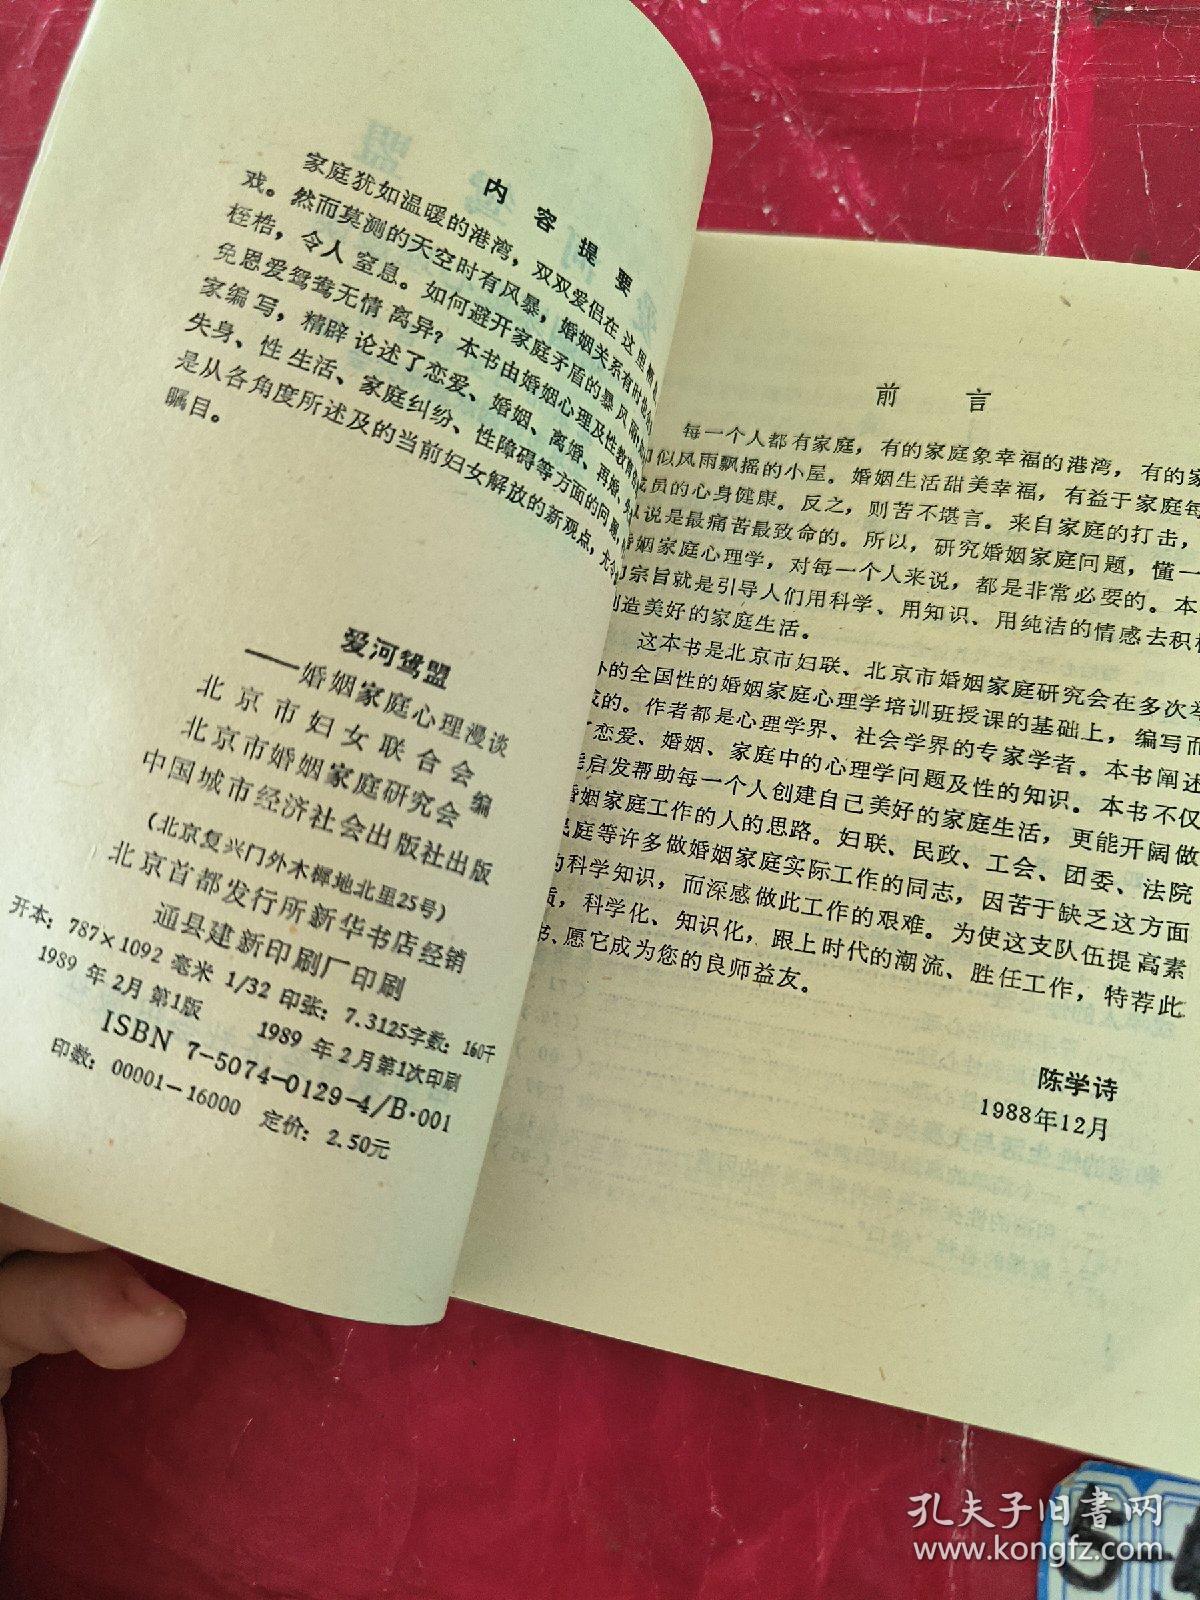 内容提要
家庭犹如温暖的港湾，双双爱侣在这里栖
戏。然而莫测的天空时有风暴，婚姻关系有时也如
桎梏，令人窒息。如何避开家庭矛盾的暴风雨，
免恩爱鸳鸯无情离异？本书由婚姻心理及性教育
家编写，精辟论述了恋爱、婚姻、离婚、再婚、
失身、性生活、家庭纠纷、性障碍等方面的问题，
是从各角度所述及的当前妇女解放的新观点，尤令
瞩目。
爱河鸳盟
——婚姻家庭心理漫谈
北京市妇女联合会
北京市婚姻家庭研究会 编
中国城市经济社会出版社出版
（北京复兴门外木樨地北里25号）
北京首都发行所新华书店经销
通县建新印刷厂印刷
开本：787×1092 毫米 1/32 印张：7.3125字数：160千
1989 年2月 第1版 1989 年2月第1次印刷
ISBN 7-5074-0129-4/B·001
印数：00001—16000 定价：2.50元
前言
每一个人都有家庭，有的家庭象幸福的港湾，有的家
似风雨飘摇的小屋。婚姻生活甜美幸福，有益于家庭每
成员的心身健康。反之，则苦不堪言。来自家庭的打击，
以说是最痛苦最致命的。所以，研究婚姻家庭问题，懂一
婚姻家庭心理学，对每一个人来说，都是非常必要的。本
的宗旨就是引导人们用科学、用知识、用纯洁的情感去积极
创造美好的家庭生活。
这本书是北京市妇联、北京市婚姻家庭研究会在多次举
办的全国性的婚姻家庭心理学培训班授课的基础上，编写而
成的。作者都是心理学界、社会学界的专家学者。本书阐述
了恋爱、婚姻、家庭中的心理学问题及性的知识。本书不仅
能启发帮助每一个人创建自己美好的家庭生活，更能开阔做
婚姻家庭工作的人的思路。妇联、民政、工会、团委、法院
民庭等许多做婚姻家庭实际工作的同志，因苦于缺乏这方面
的科学知识，而深感做此工作的艰难。为使这支队伍提高素
质，科学化、知识化，跟上时代的潮流、胜任工作，特荐此
书、愿它成为您的良师益友。
陈学诗
1988年12月
孔夫子旧书网
www.kongfz.com